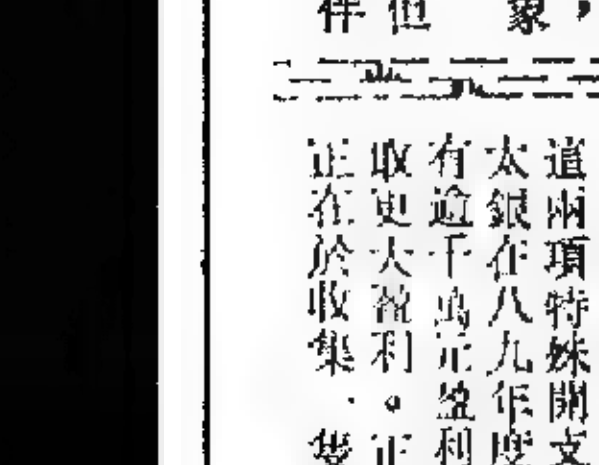 象，
但
样
這兩項特殊開支
太銀在八九年度
有逾千萬元盈利
取更大盈利。正
正在於收集